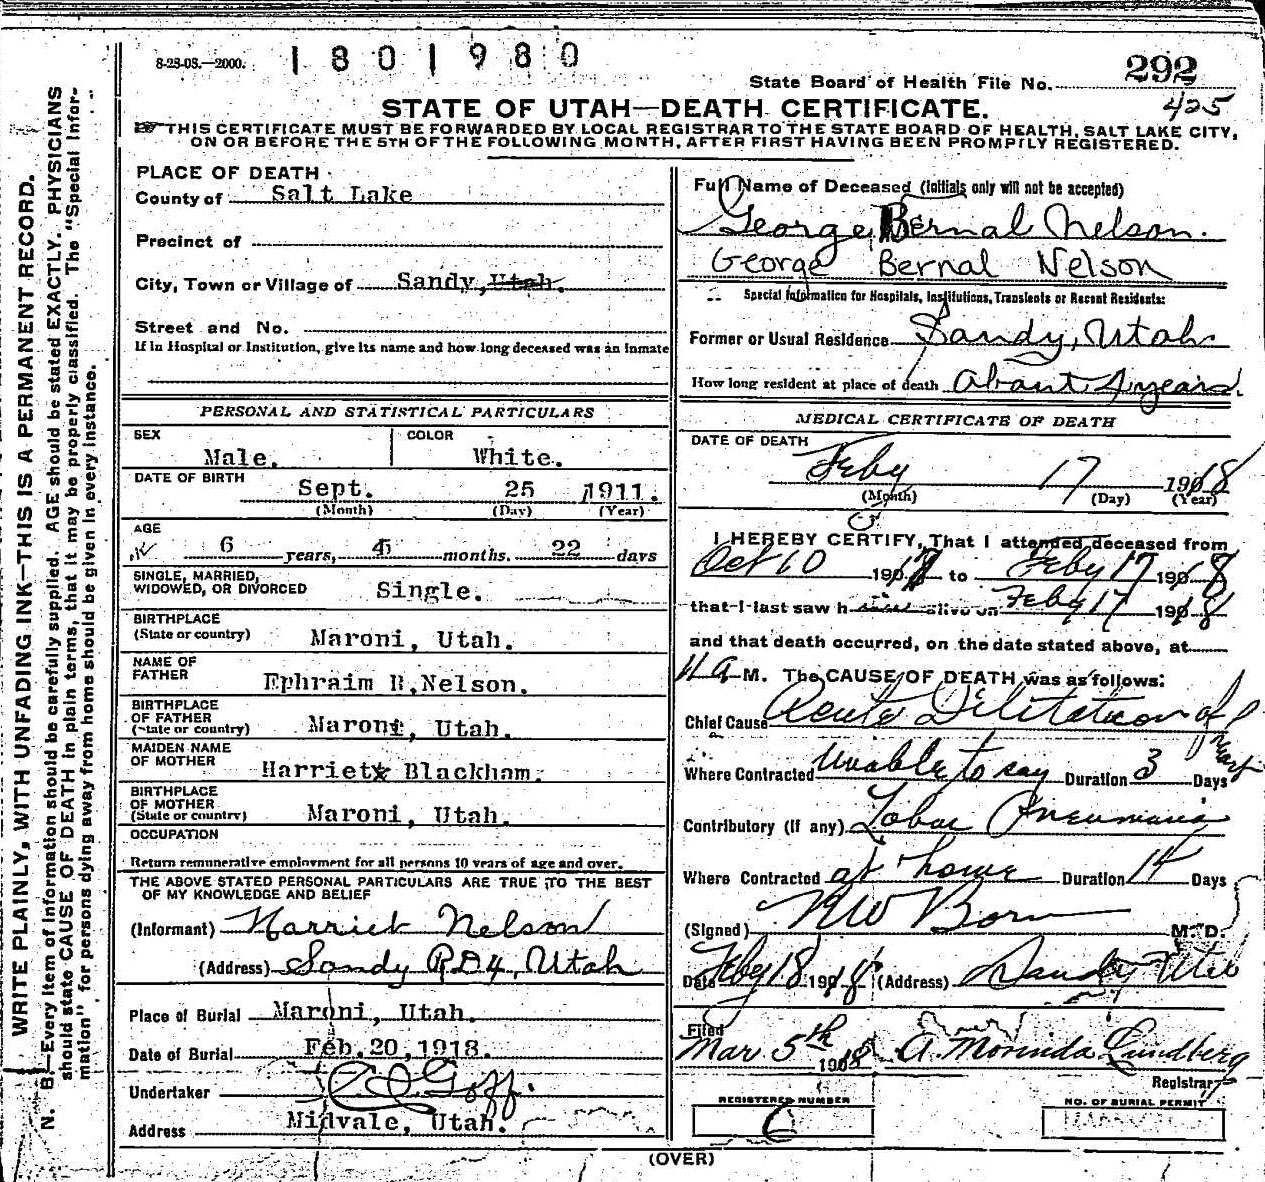 8-28-08.—2000. 1801980
292
State Board of Health File No.
425
STATE OF UTAH—DEATH CERTIFICATE.
THIS CERTIFICATE MUST BE FORWARDED BY LOCAL REGISTRAR TO THE STATE BOARD OF HEALTH, SALT LAKE CITY,
ON OR BEFORE THE 5TH OF THE FOLLOWING MONTH, AFTER FIRST HAVING BEEN PROMPTLY REGISTERED.
WRITE PLAINLY, WITH UNFADING INK—THIS IS A PERMANENT RECORD.
N. B.—Every item of information should be carefully supplied. AGE should be stated EXACTLY. PHYSICIANS
should state CAUSE OF DEATH in plain terms, that it may be properly classified. The "Special Infor-
mation" for persons dying away from home should be given in every instance.
PLACE OF DEATH
County of Salt Lake
Precinct of
City, Town or Village of Sandy, Utah.
Street and No.
If in Hospital or Institution, give its name and how long deceased was an inmate
PERSONAL AND STATISTICAL PARTICULARS
SEX COLOR
Male. White.
DATE OF BIRTH
Sept. 25 1911.
(Month) (Day) (Year)
AGE
6 years, 4 months. 22 days
SINGLE, MARRIED,
WIDOWED, OR DIVORCED Single.
BIRTHPLACE
(State or country) Maroni, Utah.
NAME OF
FATHER Ephraim B. Nelson.
BIRTHPLACE
OF FATHER
(State or country) Maroni, Utah.
MAIDEN NAME
OF MOTHER Harriet Blackham.
BIRTHPLACE
OF MOTHER
(State or country) Maroni, Utah.
OCCUPATION
Return remunerative employment for all persons 10 years of age and over.
THE ABOVE STATED PERSONAL PARTICULARS ARE TRUE TO THE BEST
OF MY KNOWLEDGE AND BELIEF
(Informant) Harriet Nelson
(Address) Sandy RD4, Utah
Place of Burial Maroni, Utah.
Date of Burial Feb. 20, 1918.
Undertaker Goff.
Address Midvale, Utah.
Full Name of Deceased (Initials only will not be accepted)
George Bernal Nelson.
George Bernal Nelson
Special Information for Hospitals, Institutions, Transients or Recent Residents:
Former or Usual Residence Sandy, Utah.
How long resident at place of death About 4 years.
MEDICAL CERTIFICATE OF DEATH
DATE OF DEATH
Feby 17 1918
(Month) (Day) (Year)
I HEREBY CERTIFY, That I attended deceased from
Oct 10 1917 to Feby 17 1918
that I last saw h alive on Feby 17 1918
and that death occurred, on the date stated above, at
11 A M. The CAUSE OF DEATH was as follows:
Chief Cause Acute Dilitation of Heart
Where Contracted Unable to say Duration 3 Days
Contributory (if any) Lobar Pneumonia
Where Contracted at home Duration 14 Days
(Signed) Born M. D.
Date Feby 18 1918 (Address) Sandy Utah
Filed
Mar 5th 1918 A. Morinda Lundberg
Registrar
REGISTERED NUMBER
6
NO. OF BURIAL PERMIT
(OVER)